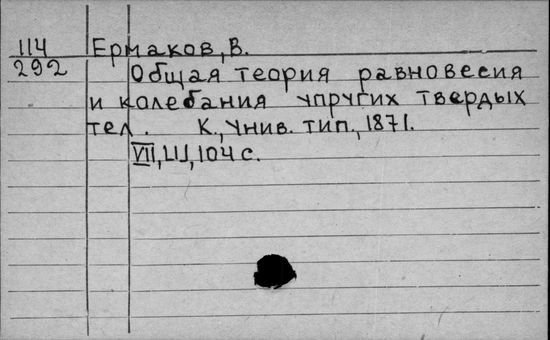 114 Ермаков, В.
292 Общая теория равновесия
и колебания упругих твердых
тел. К., Унив. тип., 1871.
VII, LIJ, 104 с.